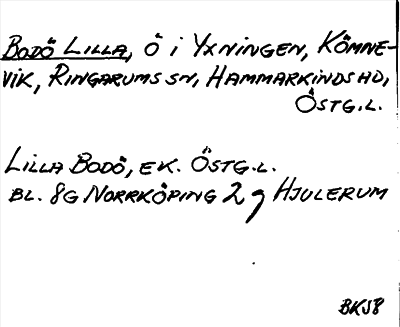 BODÖ LILLA, Ö I YXNINGEN, KÖMNE-
VIK, RINGARUMS SN, HAMMARKINDS HD,
ÖSTG.L.
LILLA BODÖ, EK. ÖSTG.L.
BL. 8G NORRKÖPING 2 g HJULERUM
BK58